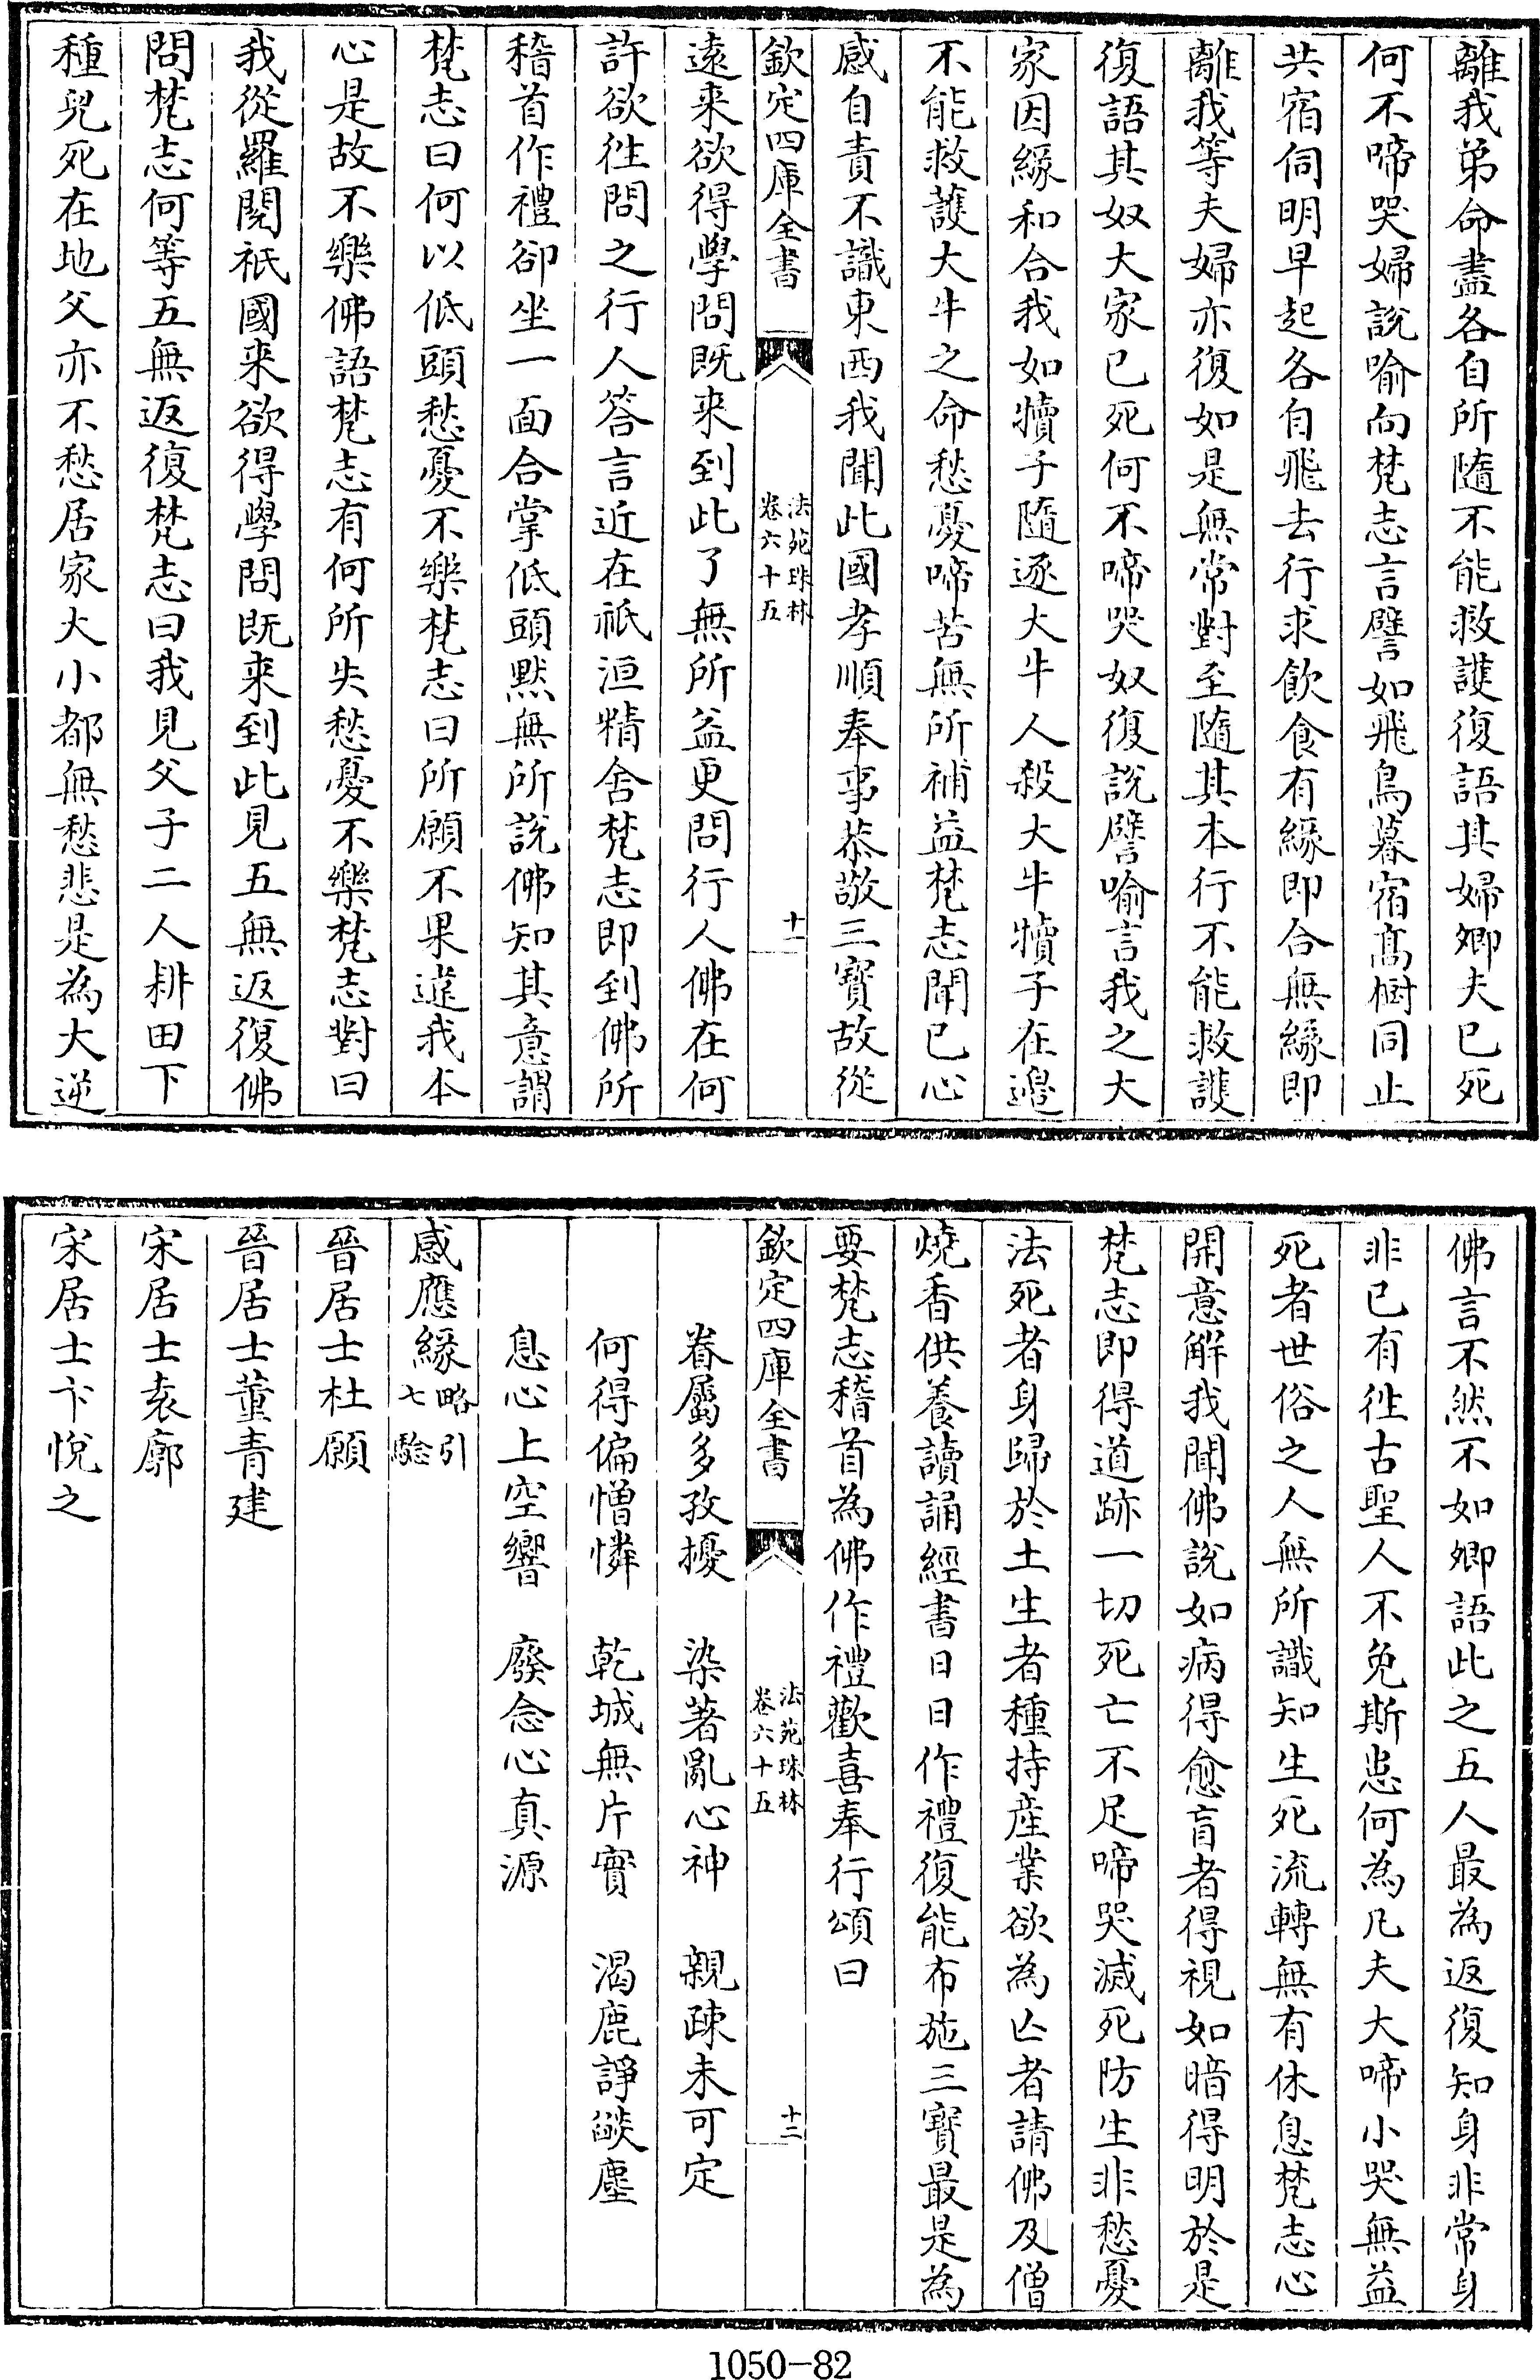 離我弟命盡各自所隨不能救護復語其婦卿夫已死
何不啼哭婦說喻向梵志言譬如飛鳥暮宿高樹同止
共宿伺明早起各自飛去行求飲食有緣即合無緣即
離我等夫婦亦復如是無常對至隨其本行不能救護
復語其奴大家已死何不啼哭奴復說譬喻言我之大
家因緣和合我如犢子隨逐大牛人殺大牛犢子在邊
不能救護大牛之命愁憂啼苦無所補益梵志聞已心
感自責不識東西我聞此國孝順奉事恭敬三寶故從
欽定四庫全書
法苑珠林
卷六十五
十一
遠来欲得學問既来到此了無所益更問行人佛在何
許欲徃問之行人答言近在祇洹精舍梵志即到佛所
稽首作禮卻坐一面合掌低頭默無所說佛知其意謂
梵志曰何以低頭愁憂不樂梵志曰所願不果違我本
心是故不樂佛語梵志有何所失愁憂不樂梵志對曰
我從羅閱祇國来欲得學問既来到此見五無返復佛
問梵志何等五無返復梵志曰我見父子二人耕田下
種兒死在地父亦不愁居家大小都無愁悲是為大逆
佛言不然不如卿語此之五人最為返復知身非常身
非已有徃古聖人不免斯患何為凡夫大啼小哭無益
死者世俗之人無所識知生死流轉無有休息梵志心
開意解我聞佛說如病得愈盲者得視如暗得明於是
梵志即得道跡一切死亡不足啼哭滅死防生非愁憂
法死者身歸於土生者種持産業欲為亾者請佛及僧
燒香供養讀誦經書日日作禮復能布施三寶最是為
要梵志稽首為佛作禮歡喜奉行頌曰
欽定四庫全書
法苑珠林
卷六十五
十二
眷屬多孜擾　染著亂心神　親疎未可定
何得偏憎憐　乾城無片實　渴鹿諍燄塵
息心上空響　廢念心真源
感應緣略引七驗
晉居士杜願
晉居士董青建
宋居士袁廓
宋居士卞悅之
1050-82